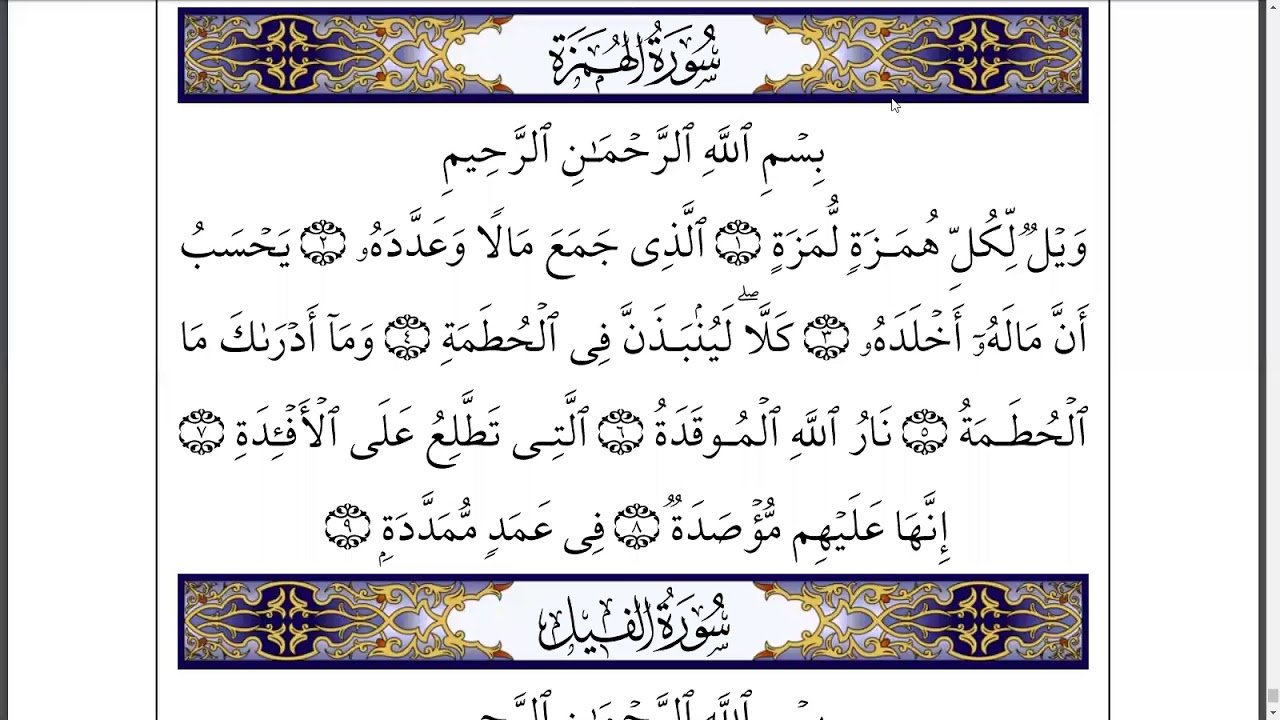 سُورَةُ الْهُمَزَةِ
بِسۡمِ ٱللَّهِ ٱلرَّحۡمَـٰنِ ٱلرَّحِيمِ
وَيۡلٌ لِّكُلِّ هُمَزَةٍ لُّمَزَةٍ ١ ٱلَّذِى جَمَعَ مَالًا وَعَدَّدَهُۥ ٢ يَحۡسَبُ
أَنَّ مَالَهُۥٓ أَخۡلَدَهُۥ ٣ كَلَّاۖ لَيُنۢبَذَنَّ فِى ٱلۡحُطَمَةِ ٤ وَمَآ أَدۡرَىٰكَ مَا
ٱلۡحُطَمَةُ ٥ نَارُ ٱللَّهِ ٱلۡمُوقَدَةُ ٦ ٱلَّتِى تَطَّلِعُ عَلَى ٱلۡأَفۡـِٔدَةِ ٧
إِنَّهَا عَلَيۡهِم مُّؤۡصَدَةٌ ٨ فِى عَمَدٍ مُّمَدَّدَةِۭ ٩
سُورَةُ الفِيلِ
بِسۡمِ ٱللَّهِ ٱلرَّحۡمَـٰنِ ٱلرَّحِيمِ